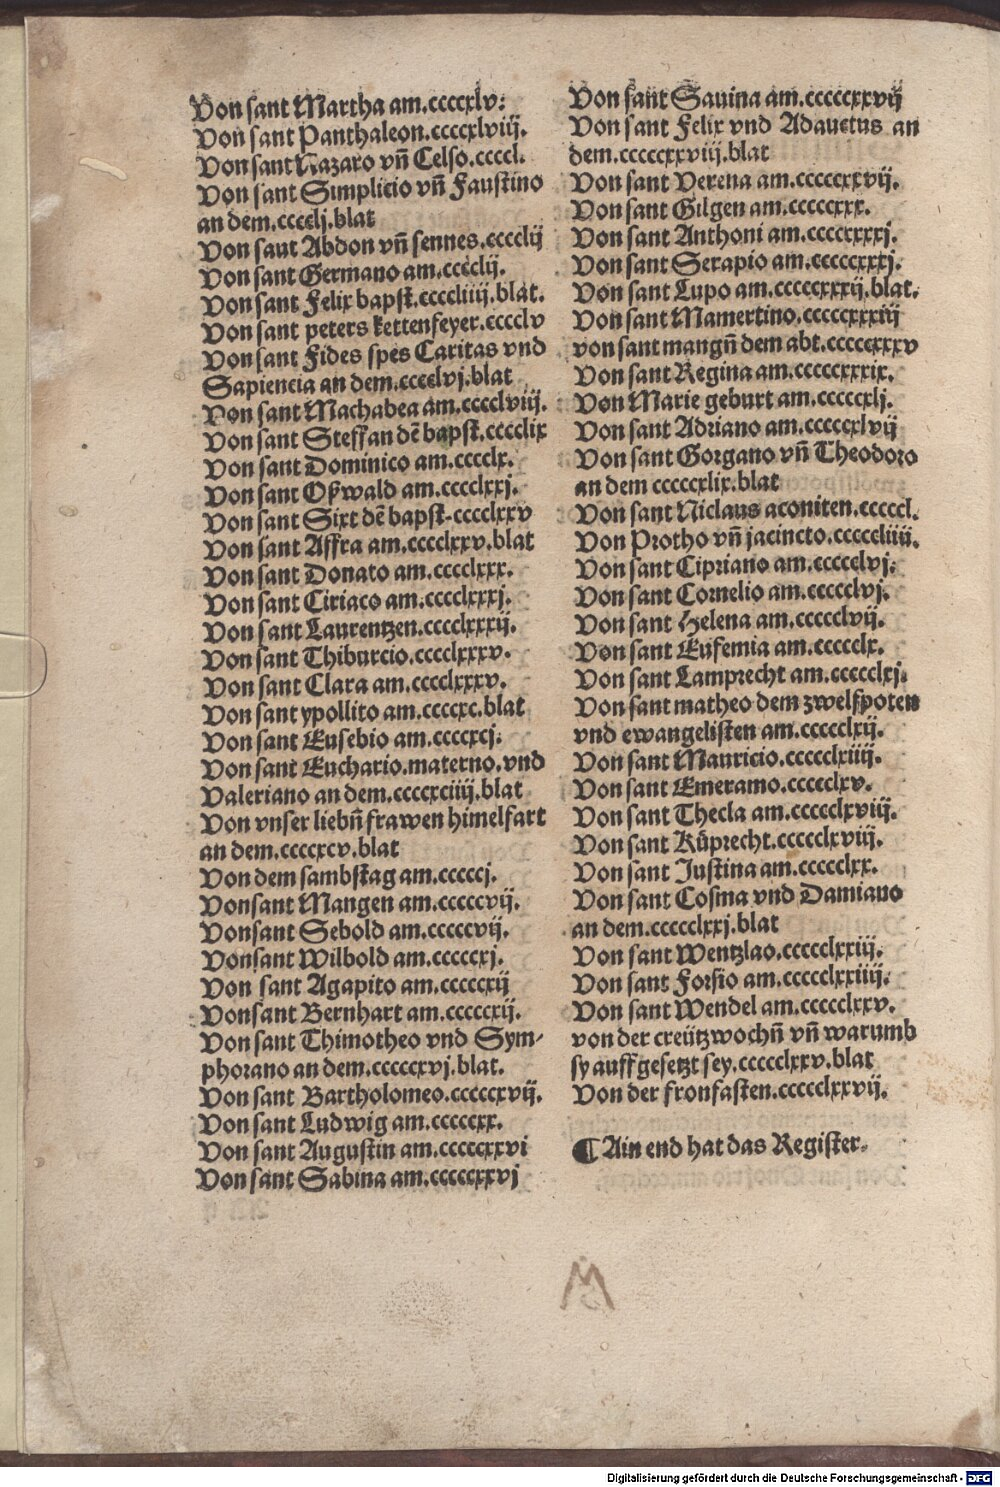 Von sant Martha am.ccccxlv:
Von sant Panthaleon.ccccxlviij.
Von sant Nazaro vn̄ Celso.ccccl.
Von sant Simplicio vn̄ Faustino
an dem.ccccli.blat
Von saut Abdon vn̄ sennes.cccclij
Von sant Germano am.cccclij.
Von sant Felix bapst.ccccliiij.blat.
Von sant peters kettenfeyer.cccclv
Von sant Fides spes Caritas vnd
Sapiencia an dem.cccclvj.blat
Von sant Machabea am.cccclviij.
Von sant Steffan dē bapst.cccclix
Von sant Dominico am.cccclx.
Von sant Oßwald am.cccclxxj.
Von sant Sixt dē bapst.cccclxxv
Von sant Affra am.cccclxxv.blat
Von sant Donato am.cccclxxx.
Von sant Ciriaco am.cccclxxxj.
Von sant Laurentzen.cccclxxxij.
Von sant Thiburcio.cccclxxxv.
Von sant Clara am.cccclxxxv.
Von sant ypollito am.ccccxc.blat
Von sant Eusebio am.ccccxcj.
Von sant Euchario.materno.vnd
Valeriano an dem.ccccxciiij.blat
Von vnser liebn̄ frawen himelfart
an dem.ccccxcv.blat
Von dem sambstag am.cccccj.
Vonsant Mangen am.cccccvij.
Vonsant Sebold am.cccccvij.
Vonsant Wilbold am.cccccxj.
Von sant Agapito am.cccccxij
Vonsant Bernhart am.cccccxij.
Von sant Thimotheo vnd Sym-
phorano an dem.cccccxvj.blat.
Von sant Bartholomeo.cccccxvij.
Von sant Ludwig am.cccccxx.
Von sant Augustin am.cccccxxvi
Von sant Sabina am.cccccxxvj
Von sant Sauina am.cccccxxvij
Von sant Felix vnd Adauctus an
dem.cccccxxviij.blat
Von sant Verena am.cccccxxvij.
Von sant Gilgen am.cccccxxx.
Von sant Anthoni am.ccccxxxxj.
Von sant Serapio am.cccccxxxj.
Von sant Lupo am.cccccxxxij.blat.
Von sant Mamertino.cccccxxxiij
von sant mangn̄ dem abt.cccccxxxv
Von sant Regina am.cccccxxxix.
Von Marie geburt am.cccccxlj.
Von sant Adriano am.cccccxlvij
Von sant Gorgano vn̄ Theodoro
an dem cccccxlix.blat
Von sant Niclaus aconiten.cccccl.
Von Protho vn̄ jacincto.cccccliiij.
Von sant Cipriano am.ccccclvj.
Von sant Cornelio am.ccccclvj.
Von sant Helena am.cccccclvij.
Von sant Eufemia am.cccccclx.
Von sant Lamprecht am.cccccclxj.
Von sant matheo dem zwelfpoten
vnd ewangelisten am.cccccclxij.
Von sant Mauricio.cccccclxiiij.
Von sant Emeramo.cccccclxv.
Von sant Thecla am.cccccclxviij.
Von sant Rüprecht.cccccclxviij.
Von sant Justina am.cccccclxx.
Von sant Cosma vnd Damiano
an dem.cccccclxxj.blat
Von sant Wentzlao.cccccclxxiij.
Von sant Forsio am.cccccclxxiiij.
Von sant Wendel am.cccccclxxv.
von der creütz wochn̄ vn̄ warumb
sy auff gesetzt sey.cccccclxxv.blat
Von der fronfasten.cccccclxxvij.
¶ Ain end hat das Register.
Digitalisierung gefördert durch die Deutsche Forschungsgemeinschaft - DFG